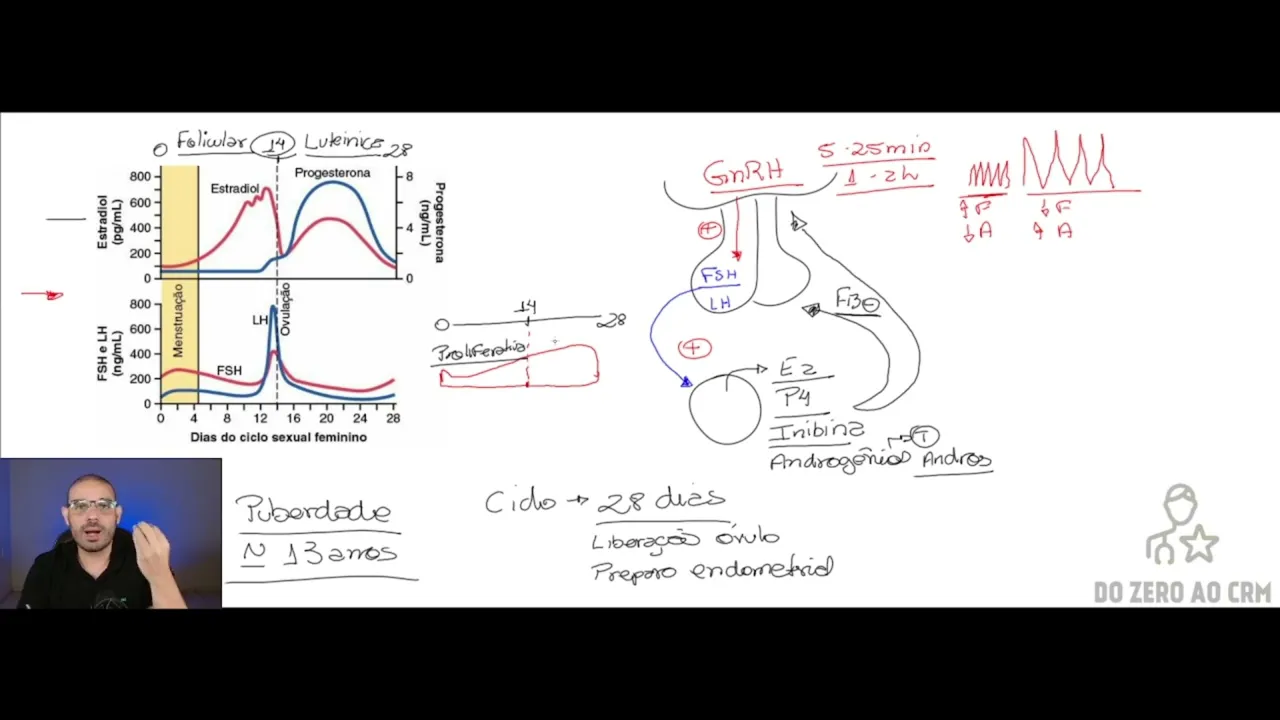 0 Folicular 14 Luteínica 28
Estradiol (pg/mL)
800
600
400
200
0
Estradiol
Progesterona
8
4
0
Progesterona (ng/mL)
FSH e LH (ng/mL)
800
600
400
200
0
Menstruação
FSH
LH
Ovulação
0 4 8 12 16 20 24 28
Dias do ciclo sexual feminino
0 14 28
Proliferativa
GnRH
5-25min
1-2h
↑F ↓F
↓A ↑A
+
FSH
LH
+
FB -
E2
P4
Inibina
Androgênios → T
Andros
Puberdade
N 13 anos
Ciclo → 28 dias
Liberação óvulo
Preparo endometrial
DO ZERO AO CRM